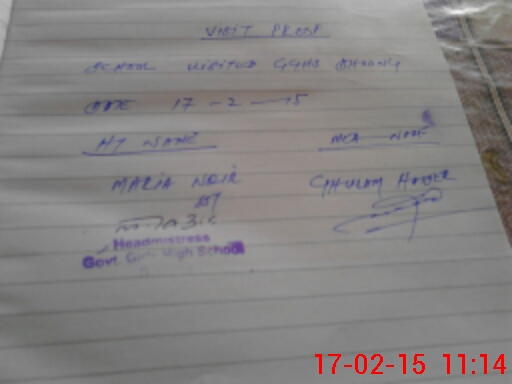 VISIT PROOF
SCHOOL VISITED GGHS
DATE 17-2-15
HT NAME MEA NAME
MARIA NOIR GHULAM
Headmistress
Govt. Girls High School
17-02-15 11:14